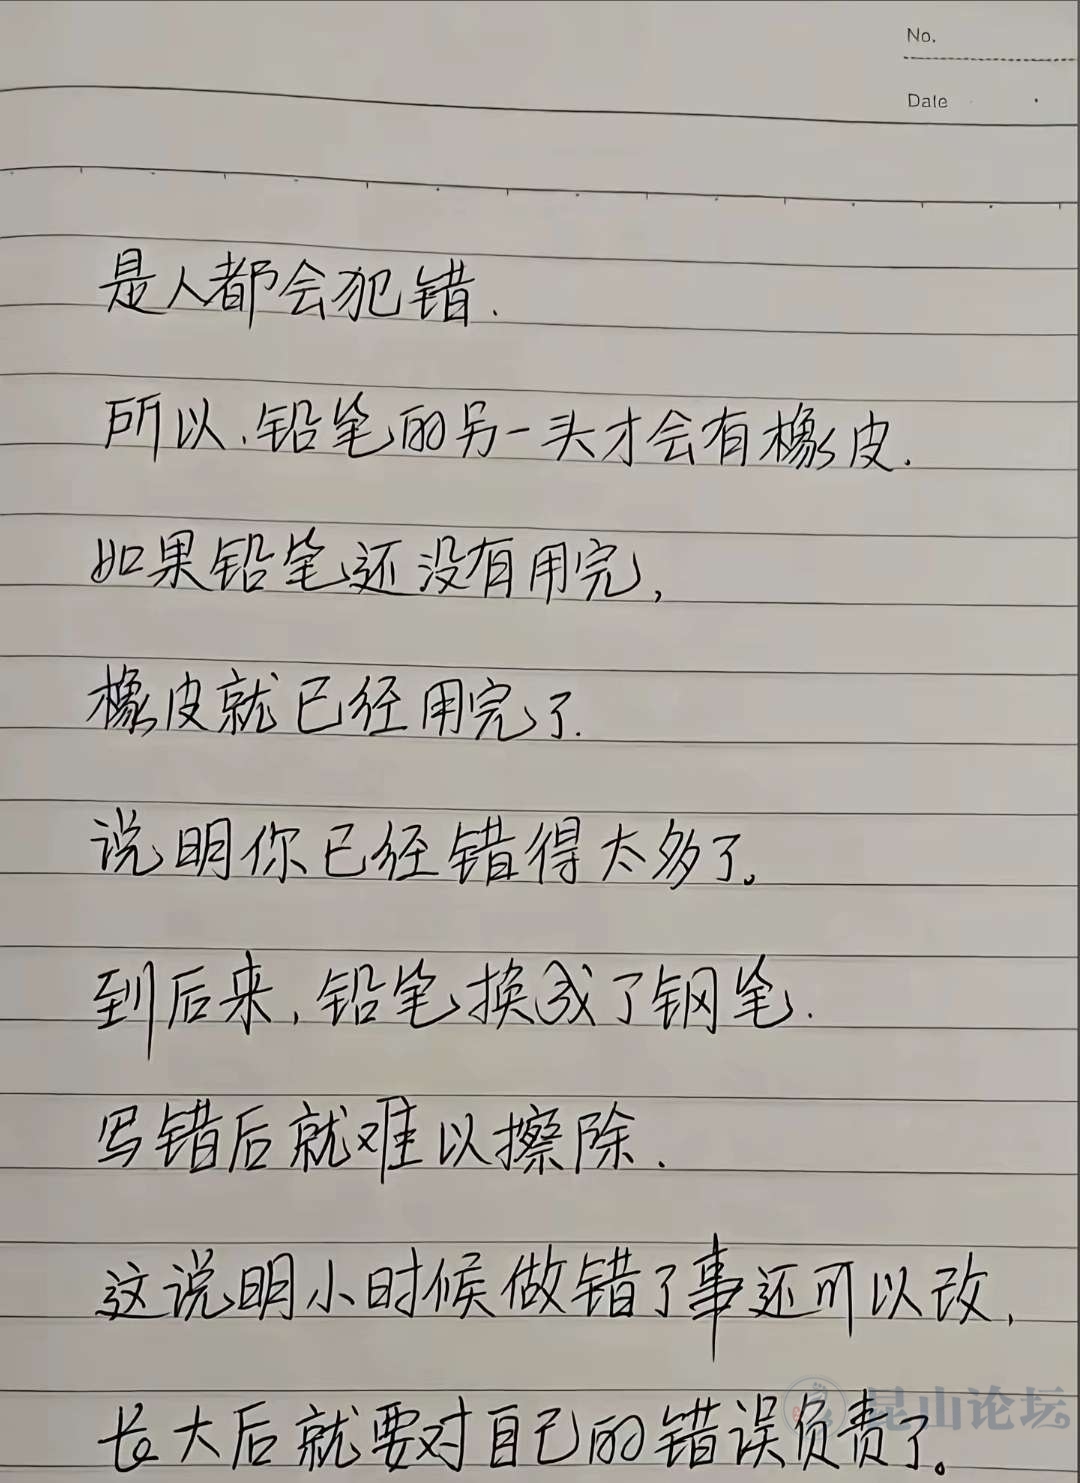 No.
Date
是人都会犯错.
所以,铅笔的另一头才会有橡皮.
如果铅笔还没有用完,
橡皮就已经用完了.
说明你已经错得太多了。
到后来,铅笔换成了钢笔.
写错后就难以擦除.
这说明小时候做错了事还可以改,
长大后就要对自己的错误负责了。
昆山论坛